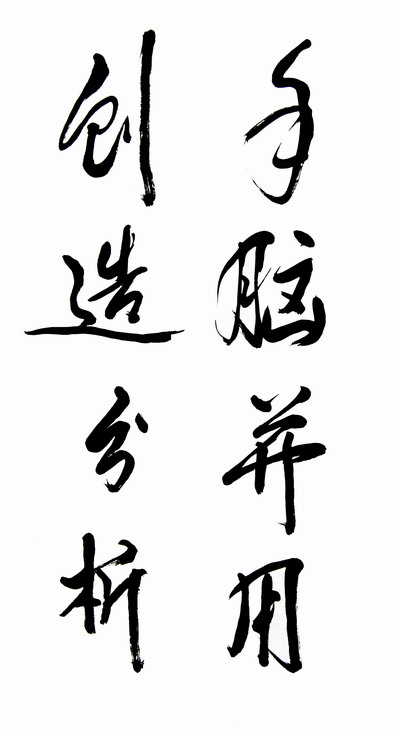 手脑并用
创造分析